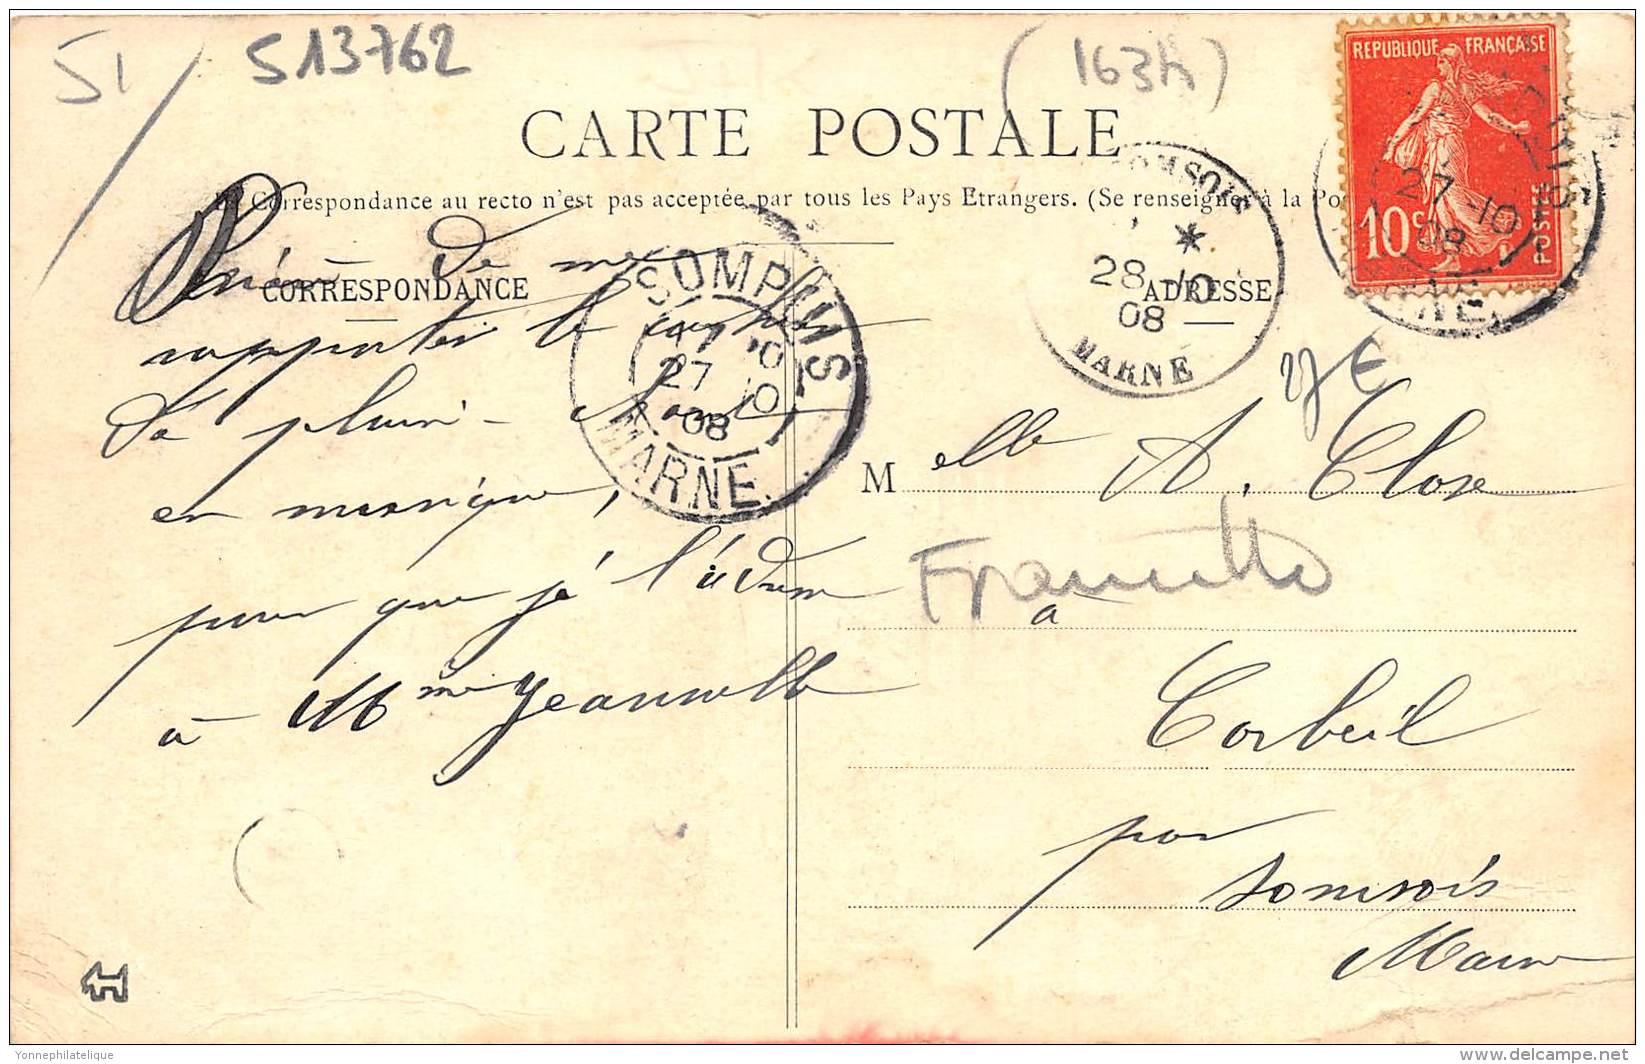 51/
513762
(163h)
REPUBLIQUE FRANÇAISE
10c
POSTES
CARTE POSTALE
La Correspondance au recto n'est pas acceptée par tous les Pays Etrangers. (Se renseigner à la Po
CORRESPONDANCE
ADRESSE
Prière de me
rapporter le
en musique,
pour que je l'
à Mme Jeannelle
SOMPUIS
27 10
08
MARNE
SOMSOIS
28 10
08
MARNE
27 10
08
Melle A. Close
à
Corbeil
par
Somsois
Marne
Yonnephilatelique
www.delcampe.net